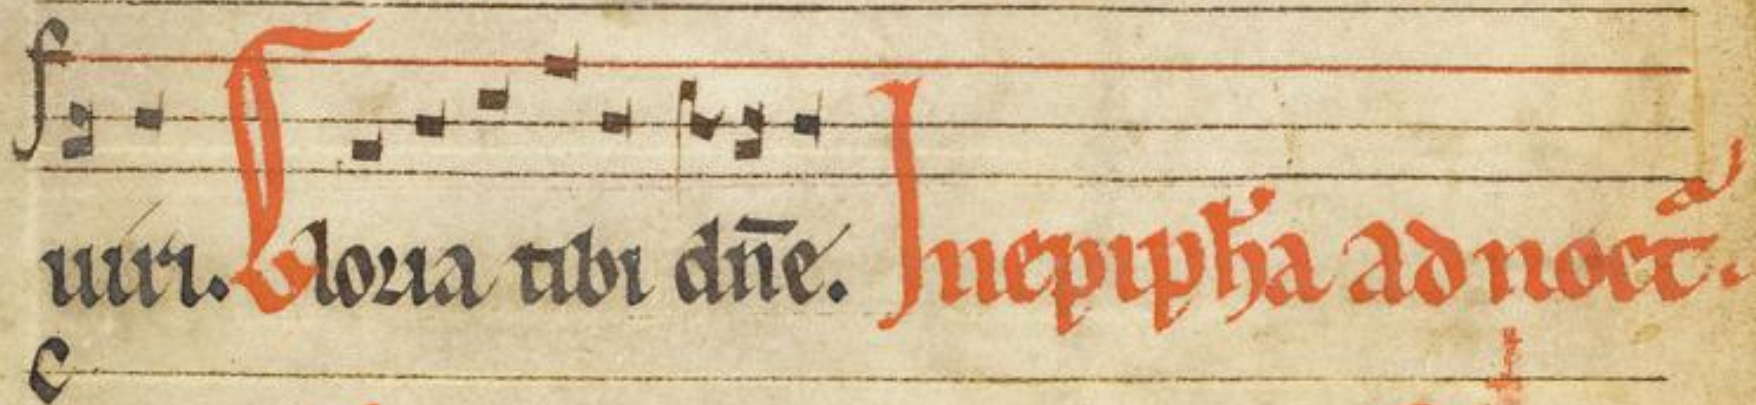 uiri. Gloria tibi dn̄e. In epiph̄a ad noct̄.